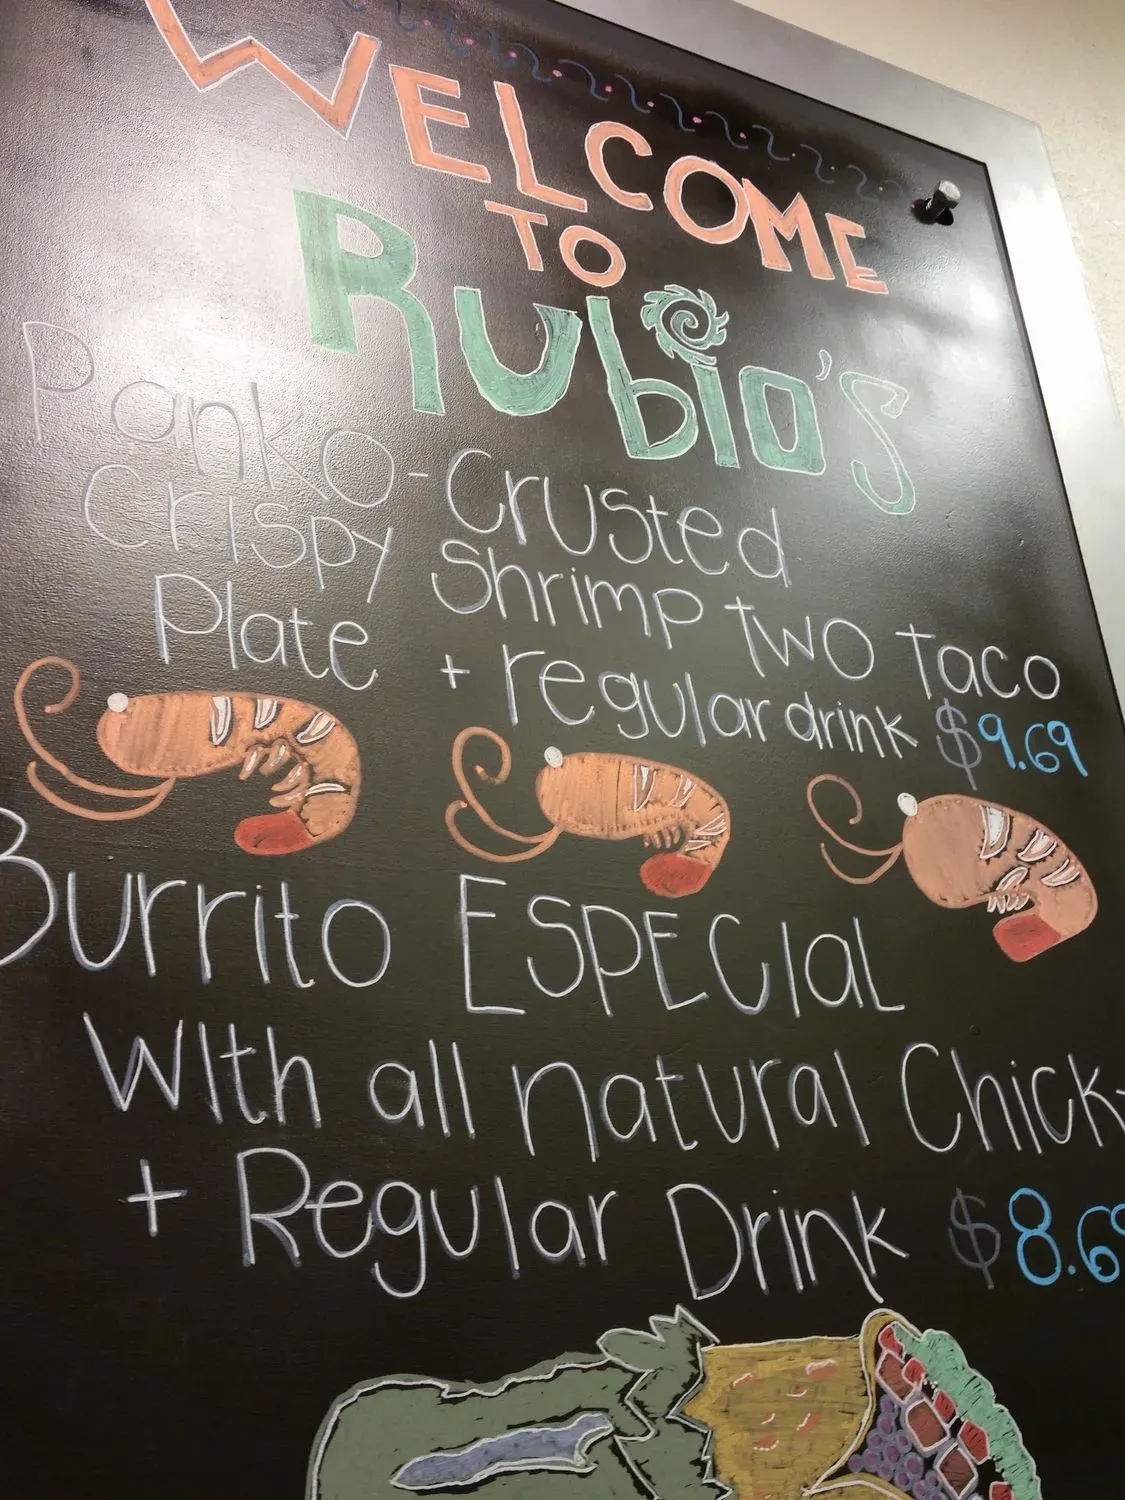 WELCOME
TO
Rubio's
Panko-Crusted
Crispy Shrimp two taco
Plate + regular drink $9.69
Burrito ESPECIAL
With all natural
+ Regular Drink